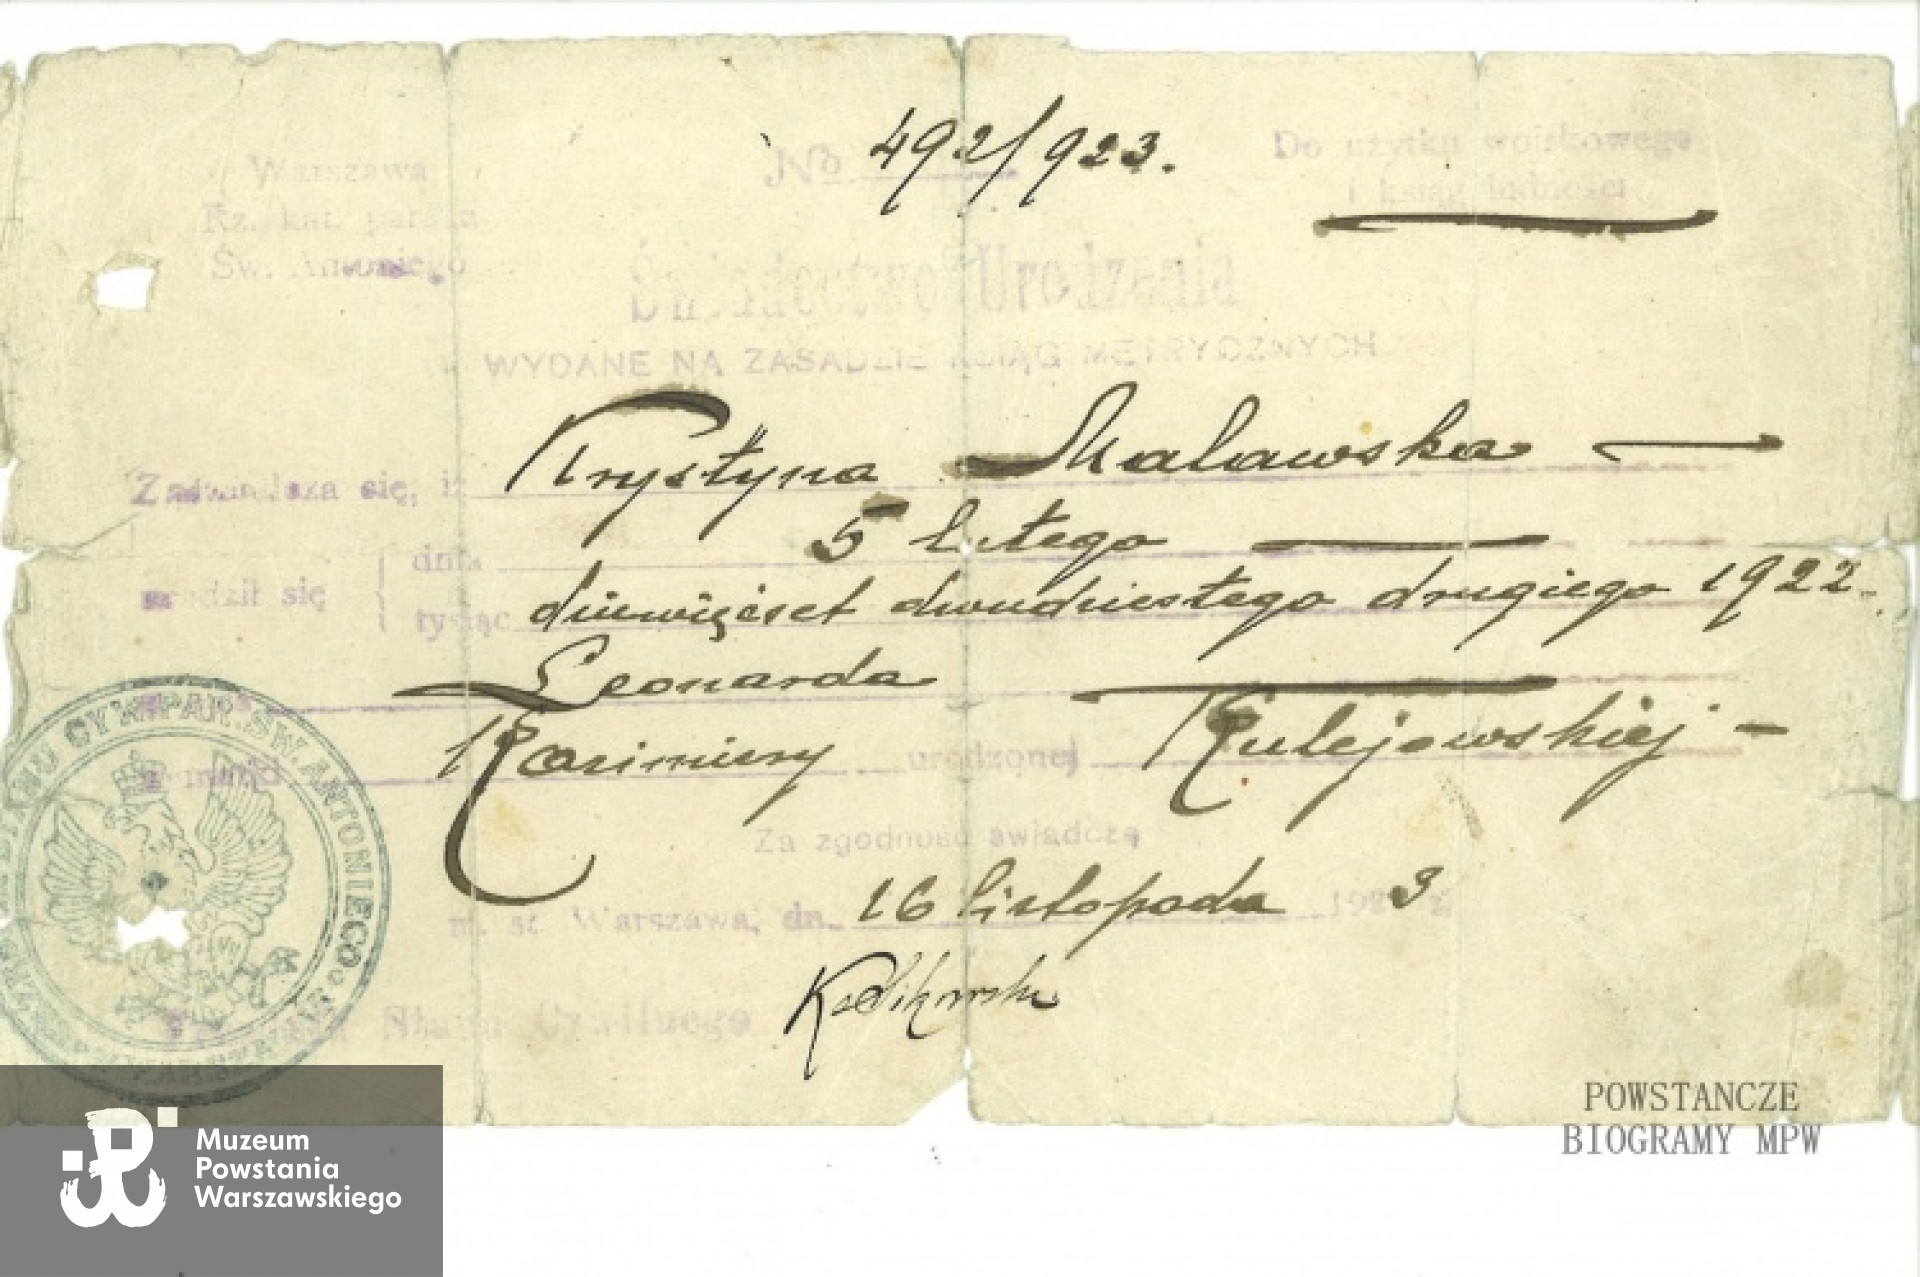 Warszawa
Rz. kat. parafia
Św. Antoniego
No 492/923.
Do użytku wojskowego
i ksiąg ludności
Świadectwo Urodzenia
WYDANE NA ZASADZIE KSIĄG METRYCZNYCH
Zaświadcza się, iż Krystyna Malawska
urodził się dnia 5 lutego
tysiąc dziewięćset dwudziestego drugiego 1922.
Leonarda
z matki Kazimiery urodzonej Kulejewskiej
Za zgodność świadczę
m. st. Warszawa, dn. 16 listopada 1923 r.
Stanu Cywilnego
CYW. PAR. ŚW. ANTONIEGO
Muzeum
Powstania
Warszawskiego
POWSTANCZE
BIOGRAMY MPW